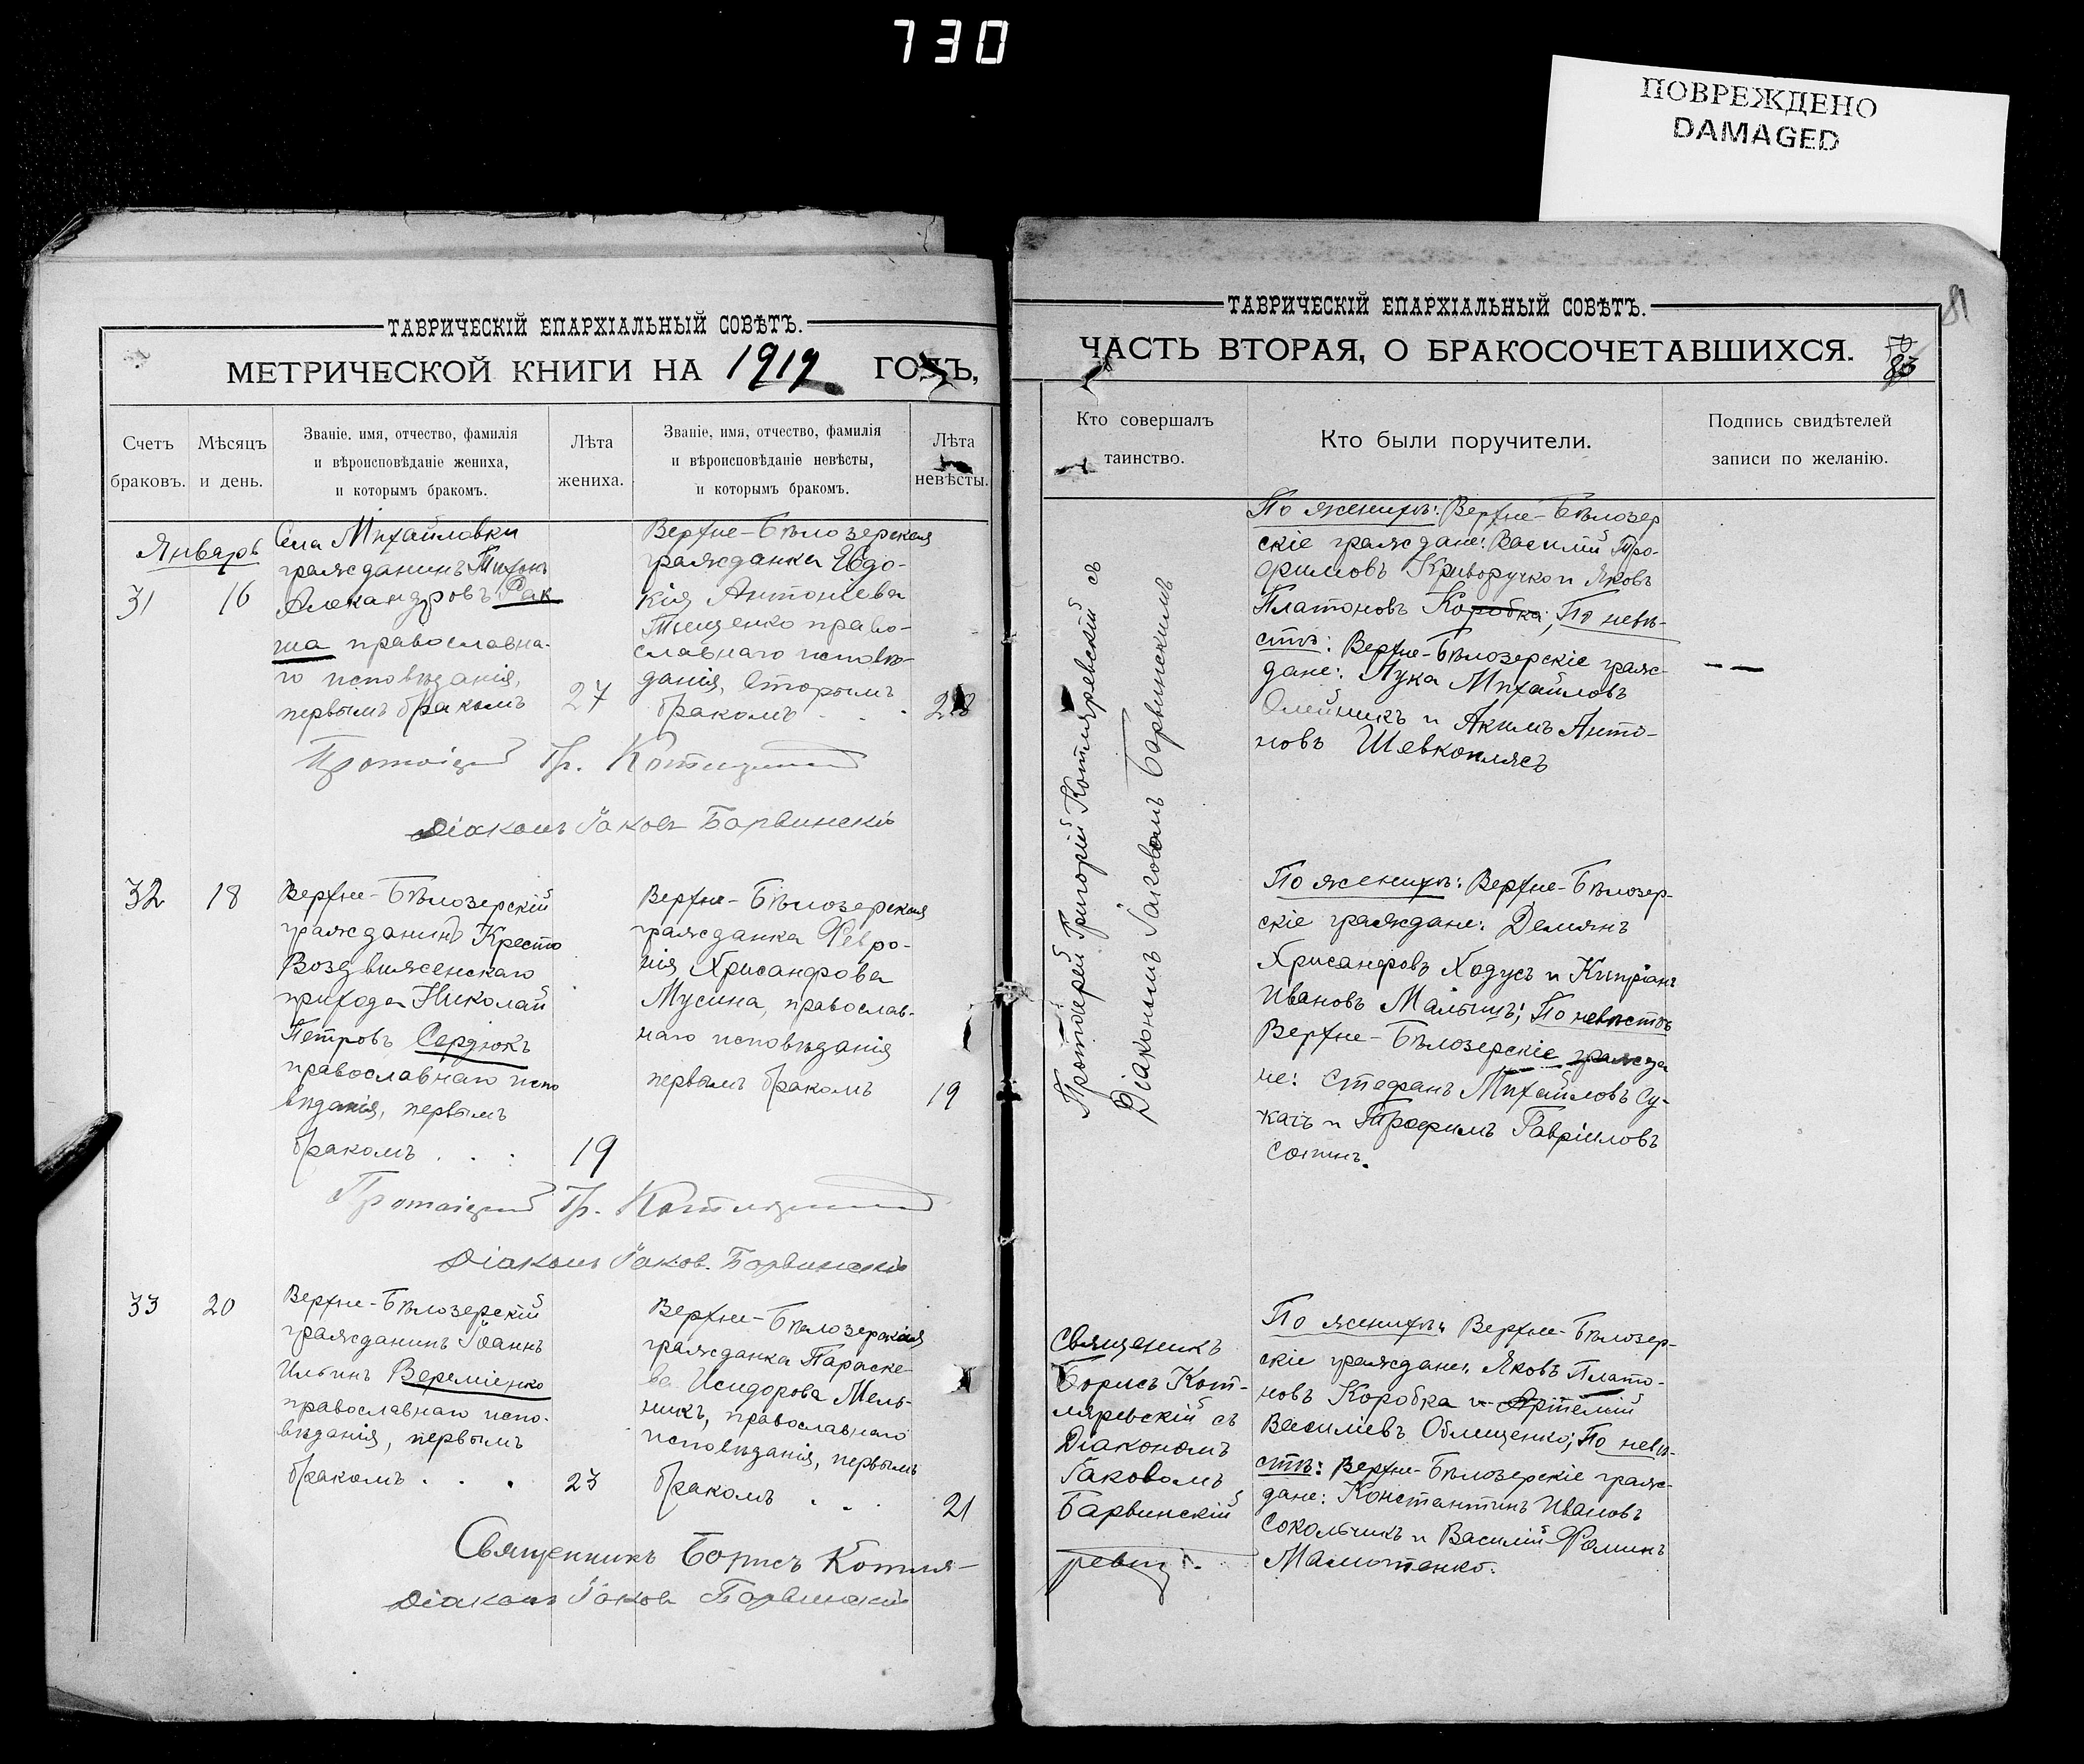 730
ПОВРЕЖДЕНО
DAMAGED
ТАВРИЧЕСКІЙ ЕПАРХІАЛЬНЫЙ СОВѢТЪ.
МЕТРИЧЕСКОЙ КНИГИ НА 1919 ГОДЪ,
Счетъ браковъ.
Мѣсяцъ и день.
Званіе, имя, отчество, фамилія
и вѣроисповѣданіе жениха,
и которымъ бракомъ.
Лѣта
жениха.
Званіе, имя, отчество, фамилія
и вѣроисповѣданіе невѣсты,
и которымъ бракомъ.
Лѣта
невѣсты.
Январь
31
16
Села Михайловки
гражданинъ Тихонъ
Александровъ Рак
ша православна-
го исповѣданія,
первымъ бракомъ
27
Верхне-Бѣлозерская
гражданка Евдо-
кія Антоніева
Тищенко право-
славнаго исповѣ-
данія, вторымъ
бракомъ . . .
28
Протоіерей Гр. Котляревскій
Діаконъ Іаковъ Барвинскій
32
18
Верхне-Бѣлозерскій
гражданинъ Кресто
Воздвиженскаго
прихода Николай
Петровъ Сердюкъ
православнаго испо
вѣданія, первымъ
бракомъ . . .
19
Верхне-Бѣлозерская
гражданка Февро-
нія Хрисанфова
Мусина, православ-
наго исповѣданія
первымъ бракомъ
19
Протоіерей Гр. Котляревскій
Діаконъ Іаковъ Барвинскій
33
20
Верхне-Бѣлозерскій
гражданинъ Іоаннъ
Ильинъ Вереміенко
православнаго испо-
вѣданія, первымъ
бракомъ . . .
23
Верхне-Бѣлозерская
гражданка Параске-
ва Исидорова Мель-
никъ, православнаго
исповѣданія, первымъ
бракомъ . . .
21
Священникъ Борисъ Котля-
Діаконъ Іаковъ Барвинскій
81
ТАВРИЧЕСКІЙ ЕПАРХІАЛЬНЫЙ СОВѢТЪ.
ЧАСТЬ ВТОРАЯ, О БРАКОСОЧЕТАВШИХСЯ.
Кто совершалъ
таинство.
Кто были поручители.
Подпись свидѣтелей
записи по желанію.
Протоіерей Григорій Котляревскій съ
Діакономъ Іаковомъ Барвинскимъ
По женихѣ: Верхне-Бѣлозер
скіе граждане: Василій Тро-
фимовъ Криворучко и Яковъ
Платоновъ Коробка; По невѣ-
стѣ: Верхне-Бѣлозерскіе граж-
дане: Лука Михайловъ
Олейникъ и Акимъ Анто-
новъ Шевкоплясъ
По женихѣ: Верхне-Бѣлозер-
скіе граждане: Демянъ
Хрисанфовъ Ходусъ и Кипріанъ
Ивановъ Малышъ; По невѣстѣ
Верхне-Бѣлозерскіе гражда
не: Стефанъ Михайловъ Су-
качъ и Трофимъ Гавріиловъ
Священикъ
Борисъ Кот-
ляревскій съ
Діакономъ
Іаковомъ
Барвинскій
ревскій.
По женихѣ: Верхне-Бѣлозер-
скіе граждане: Яковъ Плато-
новъ Коробка и Артемій
Василіевъ Облещенко; По невѣ-
стѣ: Верхне-Бѣлозерскіе граж-
дане: Константинъ Ивановъ
Сокольчикъ и Василій Фоминъ
Малютенко.